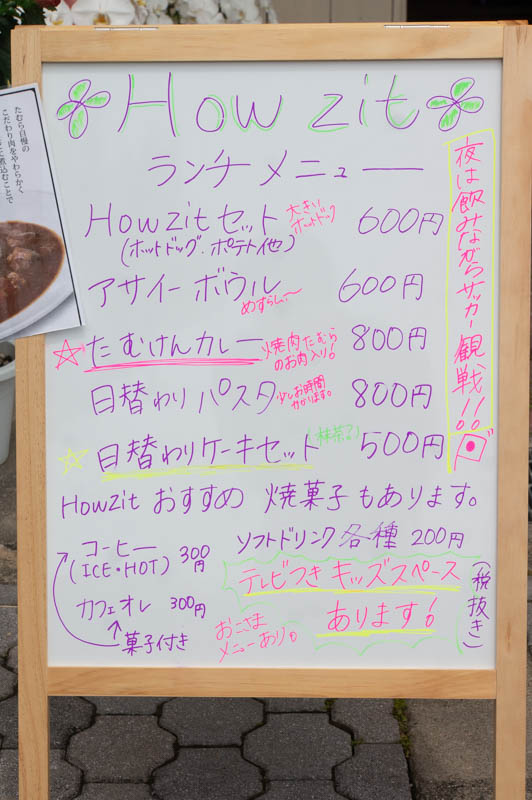 How zit
ランチメニュー
Howzitセット 大きいホットドック 600円
(ホットドッグ・ポテト他)
アサイーボウル めずらしい〜 600円
たむけんカレー 焼肉たむらのお肉入り! 800円
日替わりパスタ 少しお時間かかります。 800円
日替わりケーキセット (抹茶?) 500円
Howzit おすすめ 焼菓子もあります。
コーヒー (ICE・HOT) 300円
カフェオレ 300円
菓子付き
ソフトドリンク各種 200円
テレビつき キッズスペース
あります!
おこさま
メニューあり。
(税抜き)
夜は飲みながらサッカー観戦!!
たむら自慢の
こだわり肉をやわらかく
煮込むことで